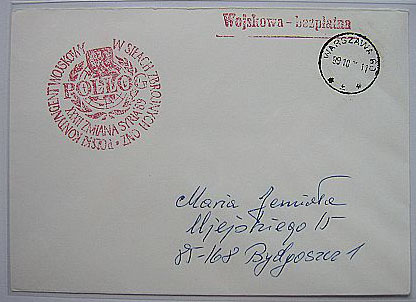 Wojskowa - bezpłatna
WARSZAWA 60
POLSKI KONTYNGENT WOJSKOWY W SIŁACH ZBROJNYCH ONZ
POLLOG
XXXII ZMIANA SYRIA 89
Maria
Miejskiego 15
85-168 Bydgoszcz 1